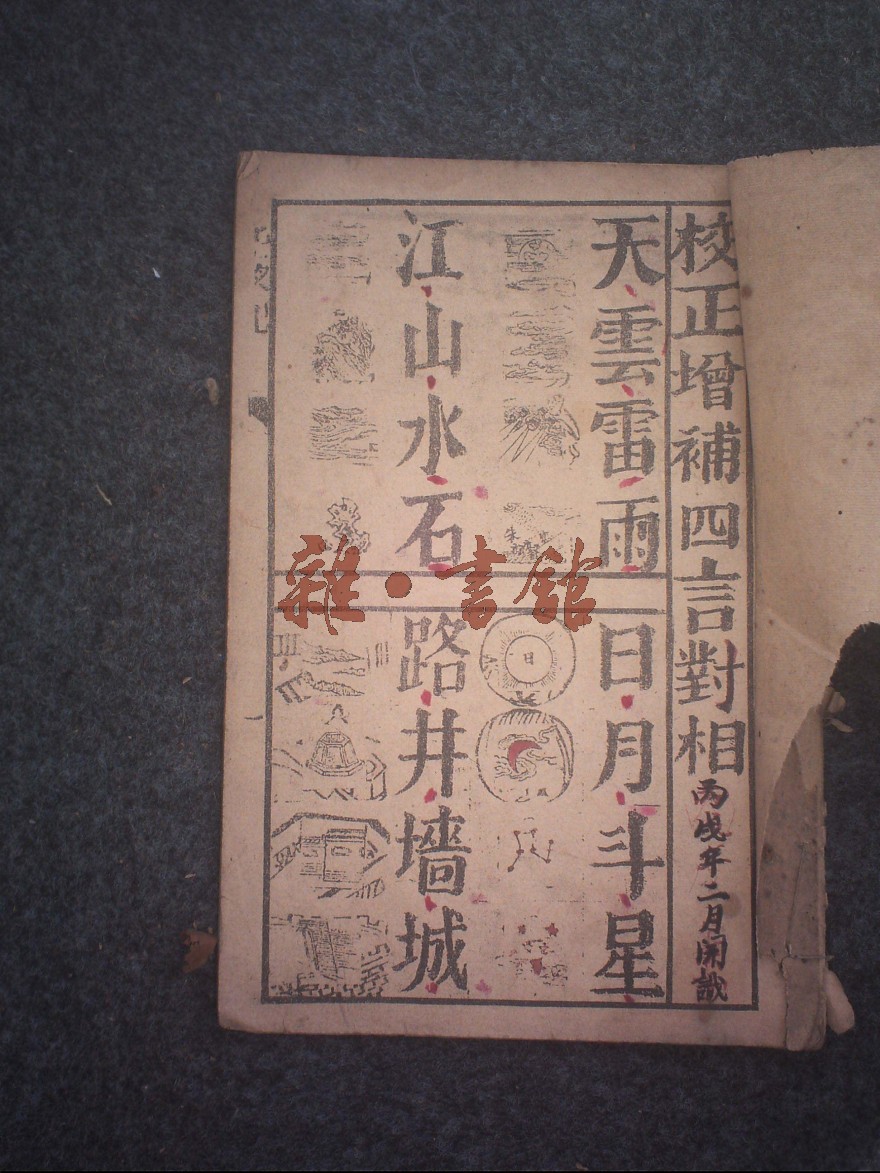 校正增補四言對相
丙戌年二月開識
天雲雷雨
日月斗星
江山水石
路井墻城
日
雜·書館